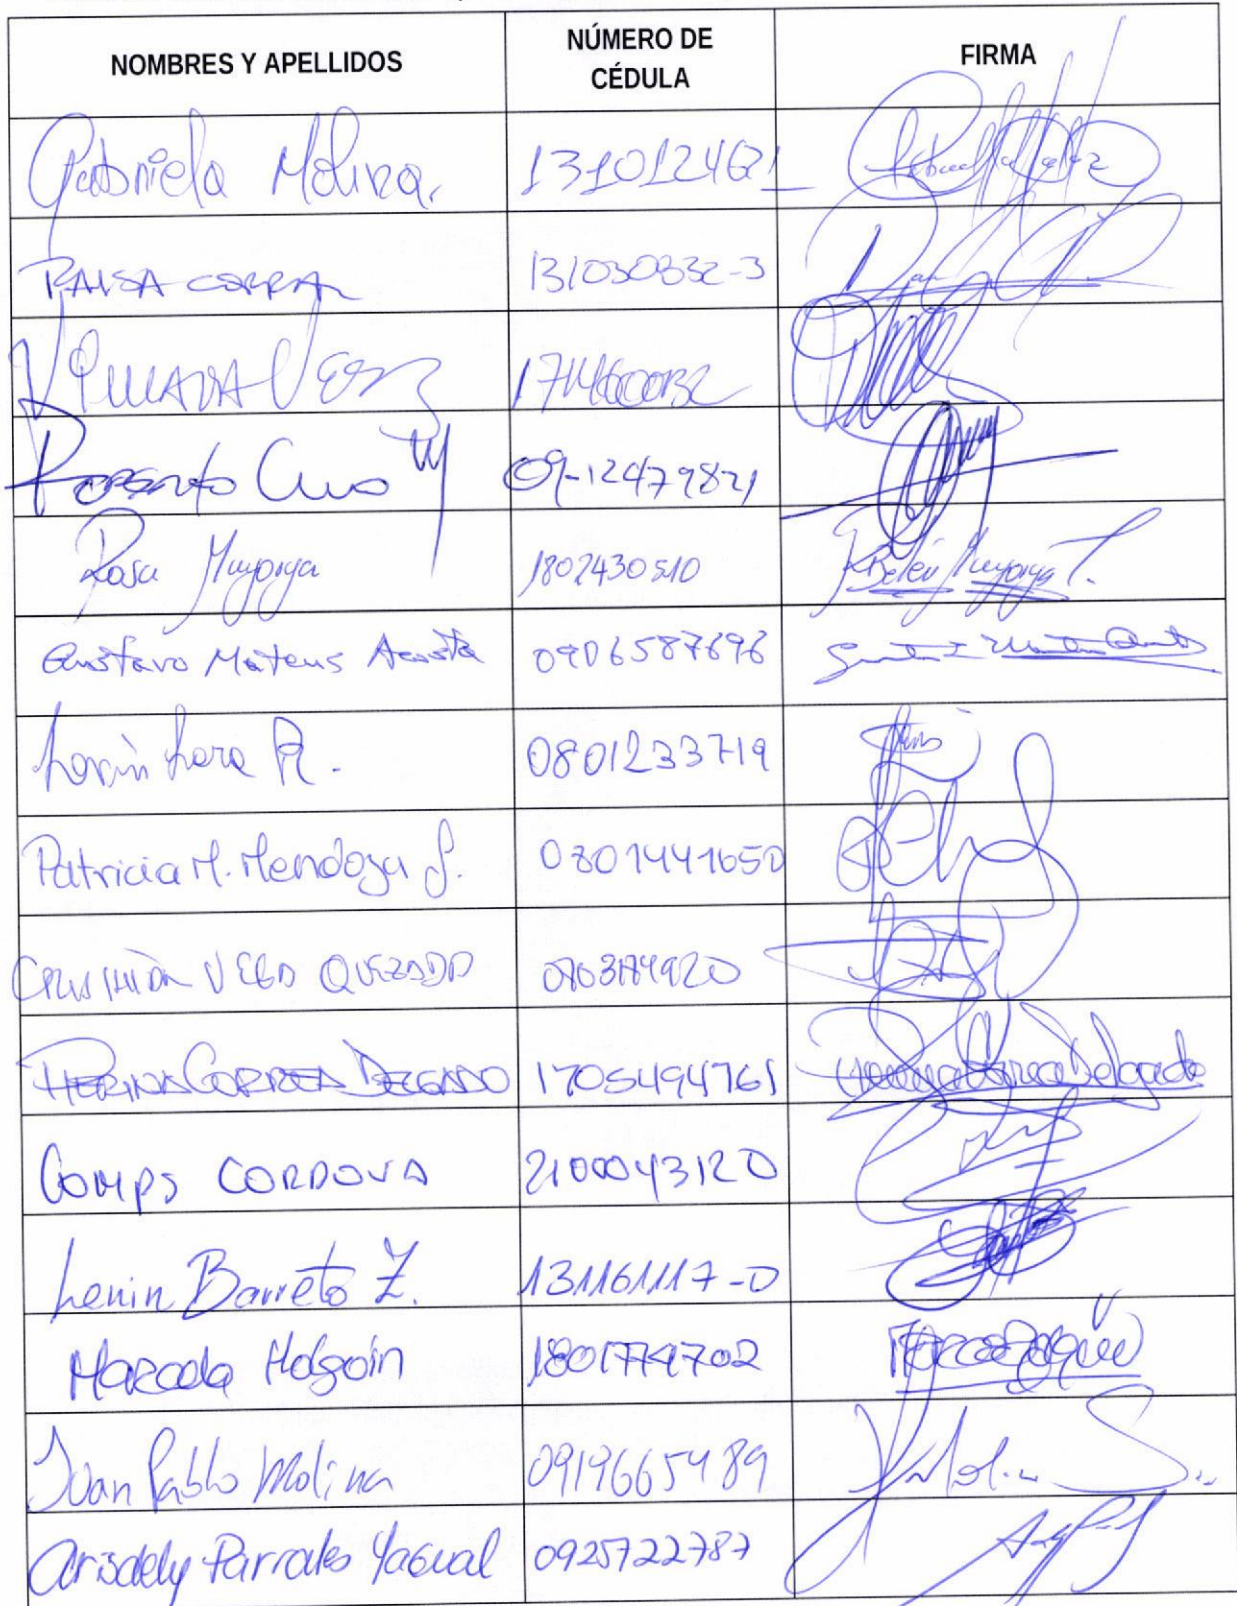 NOMBRES Y APELLIDOS NÚMERO DE CÉDULA FIRMA
Gabriela Molina. 1310124621
RAISA CORRAL 131030832-3
VIVIANA VELOZ
ROBERTO CUERO M 09-12479821
Rosa Mayorga 1802430510 RBelén Mayorga T.
Gustavo Mateus Acosta 0906587696
Lenin Lara R. 0801233719
Patricia M. Mendoza J. 0801441650
CRISTHIAN VEGA QUEZADA
PIERINA CORREA DELGADO 1705494761 Pierina Correa Delgado
COMPS CORDOVA 2100043120
Lenin Barreto Z. 131161117-0
Marcela Holguín 1801774702
Juan Pablo Molina 0919665489
Arisdely Parrales Yagual 0925722787